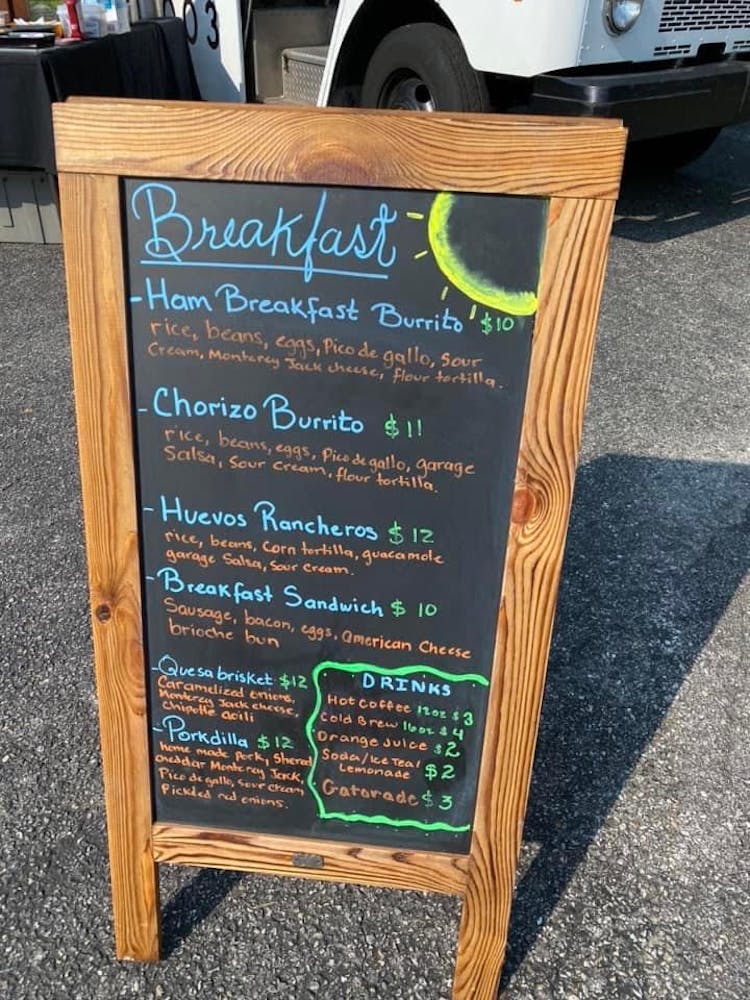 003
Breakfast
- Ham Breakfast Burrito $10
rice, beans, eggs, Pico de gallo, Sour
Cream, Monterey Jack cheese, flour tortilla.
- Chorizo Burrito $11
rice, beans, eggs, Pico de gallo, garage
Salsa, Sour cream, flour tortilla.
- Huevos Rancheros $12
rice, beans, Corn tortilla, guacamole
garage Salsa, Sour cream.
- Breakfast Sandwich $10
Sausage, bacon, eggs, American Cheese
brioche bun
- Quesabrisket $12
Caramelized onions,
Monterey Jack cheese,
Chipotle aoili
- Porkdilla $12
home made pork, Shered
cheddar Monterey Jack,
Pico de gallo, sour cream
Pickled red onions.
DRINKS
Hot Coffee 12oz $3
Cold Brew 16oz $4
Orange Juice $2
Soda/Ice Tea/
Lemonade $2
Gatorade $3